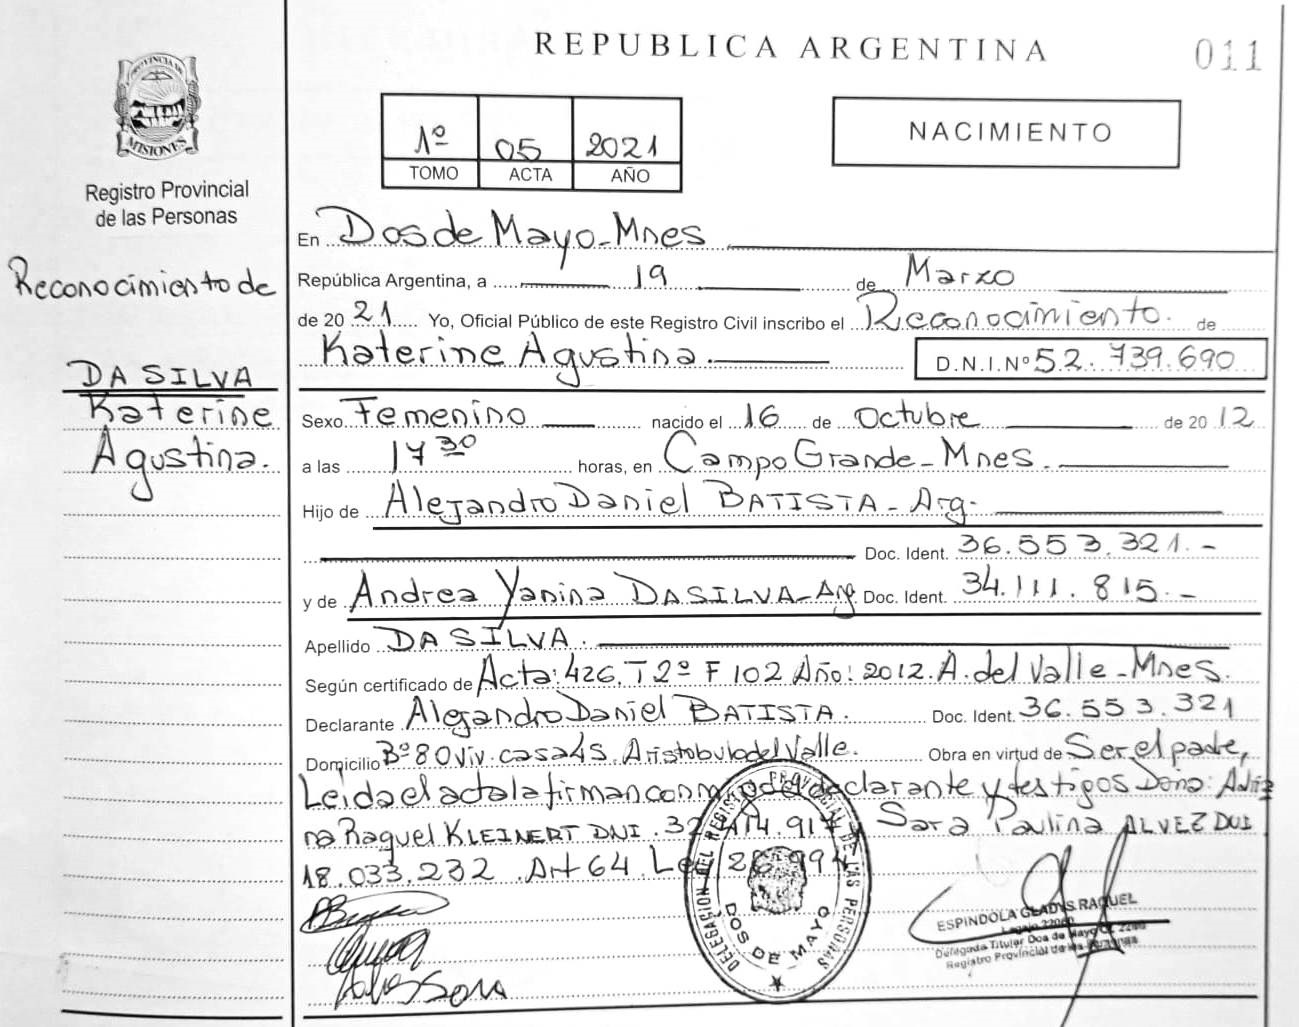 REPUBLICA ARGENTINA
011
PROVINCIA DE
MISIONES
Registro Provincial
de las Personas
1º 05 2021
TOMO ACTA AÑO
NACIMIENTO
Reconocimiento de
DA SILVA
Katerine
Agustina.
En Dos de Mayo - Mnes
República Argentina, a 19 de Marzo
de 20 21 Yo, Oficial Público de este Registro Civil inscribo el Reconocimiento. de
Katerine Agustina. D.N.I.Nº 52.739.690
Sexo Femenino nacido el 16 de Octubre de 20 12
a las 17 30 horas, en Campo Grande - Mnes.
Hijo de Alejandro Daniel BATISTA - Arg.
Doc. Ident. 36.553.321.-
y de Andrea Yanina DASILVA - Arg Doc. Ident. 34.111.815.-
Apellido DA SILVA.
Según certificado de Acta: 426. T 2º F 102 Año: 2012. A. del Valle - Mnes.
Declarante Alejandro Daniel BATISTA. Doc. Ident. 36.553.321
Domicilio Bº 80 Viv. casa 45. Aristobulo del Valle. Obra en virtud de Ser el padre,
Leida el acta la firman conmigo el declarante y testigos Doña: Adria
na Raquel KLEINERT DNI. 32 414.917 y Sara Paulina ALVEZ DNI
18.033.232 Art 64 Ley 26.994
DELEGACION DEL REGISTRO PROVINCIAL DE LAS PERSONAS
DOS DE MAYO
ESPINDOLA GLADYS RAQUEL
Delegada Titular Dos de Mayo
Registro Provincial de las Personas